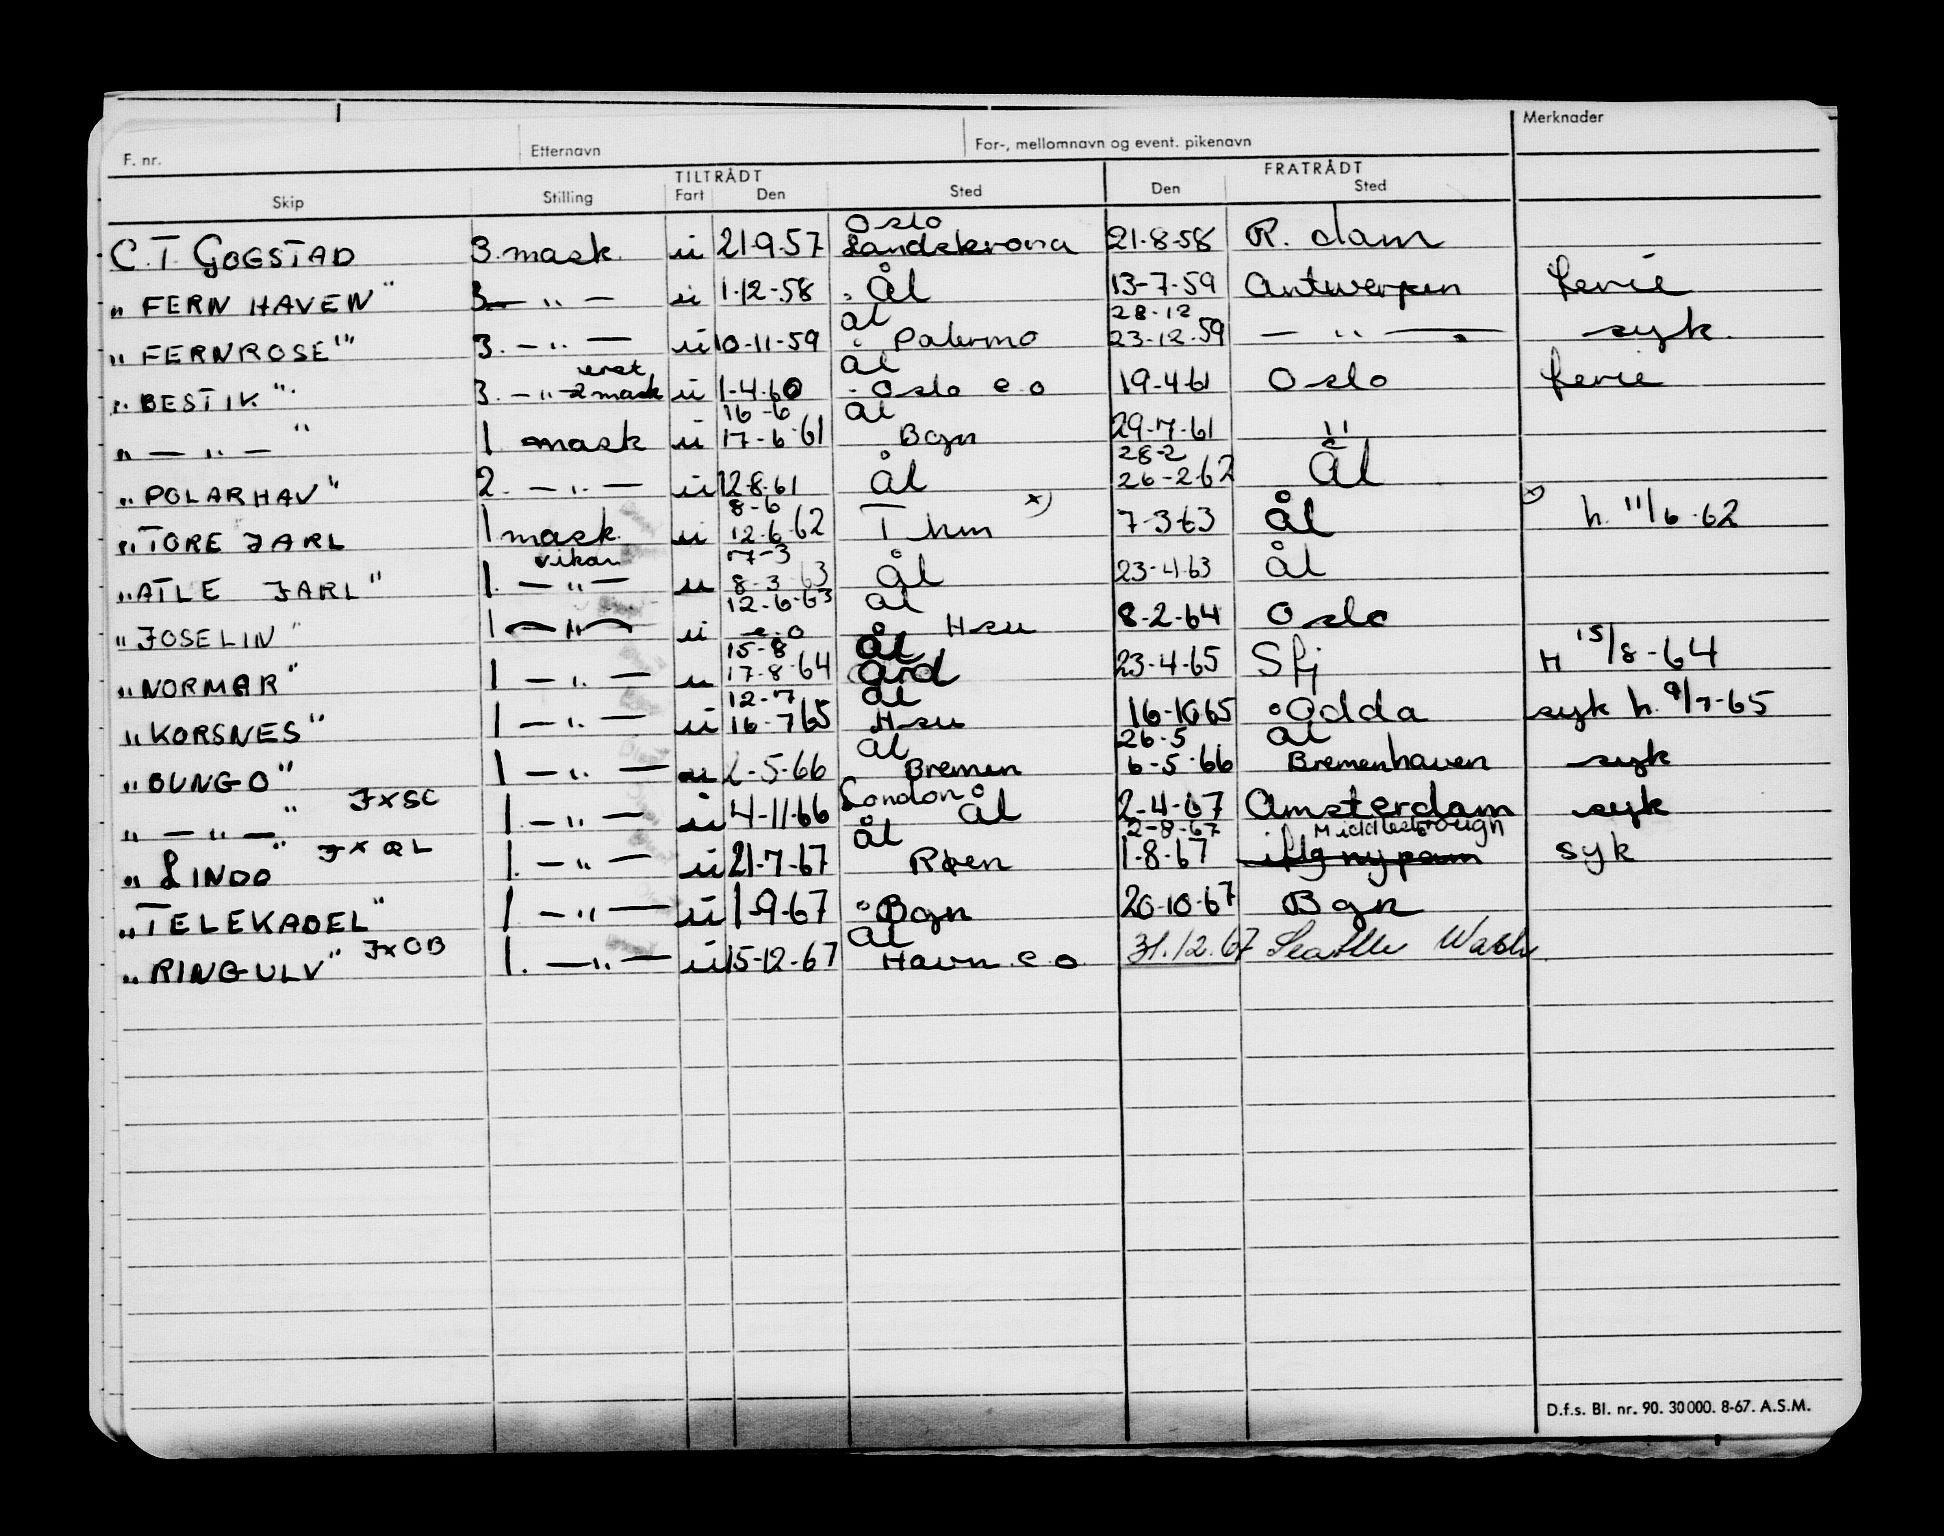 Merknader
F. nr. Etternavn For-, mellomnavn og event. pikenavn
TILTRÅDT FRATRÅDT
Skip Stilling Fart Den Sted Den Sted
Oslo
C.T. GOGSTAD 3. mask. u 21-9-57 Landskrona 21-8-58 R. dam
„ FERN HAVEN " 3. — " — u 1-12-58 Ål 13-7-59 Antwerpen ferie
ål 28-12
„ FERNROSE " 3. — " — u 10-11-59 Palermo 23-12-59 — " — syk.
ål
„ BESTIK " 3. — " — 2 mask u 1-4-60 Oslo e.o 19-4-61 Oslo ferie
16-6 ål
„ — " — " 1. mask u 17-6-61 Bgn 29-7-61 "
28-2
„ POLARHAV " 2. — " — u 12-8-61 ål 26-2-62 Ål
8-6 x)
„ TORE JARL 1 mask. u 12-6-62 Thm 7-3-63 ål x) h. 11/6-62
vikar 7-3
„ ATLE JARL " 1. — " — u 8-3-63 ål 23-4-63 ål
12-6-63 ål
„ JOSELIN " 1 — " — u e.o Hsu 8-2-64 Oslo
15-8 ål
„ NORMAR " 1 — " — u 17-8-64 Ård 23-4-65 Sfj H 15/8-64
12-7 ål
„ KORSNES " 1 — " — u 16-7-65 Hsu 16-10-65 Odda syk h. 9/7-65
ål 26-5 ål
„ OUNGO " 1 — " — u 2-5-66 Bremen 6-5-66 Bremenhaven syk
JXSC London
„ — " — " 1. — " — u 4-11-66 ål 2-4-67 Amsterdam syk
JXQL ål 2-8-67 Middlesbrough
„ LINDO " 1. — " — u 21-7-67 Roen 1-8-67 iflg ny pam syk
„ TELEKABEL " 1. — " — u 1-9-67 Bgn 20-10-67 Bgn
JXOB ål
„ RINGULV " 1. — " — u 15-12-67 Havn e.o 31.12.67 Seattle Wash.
D.f.s. Bl. nr. 90. 30 000. 8-67. A.S.M.